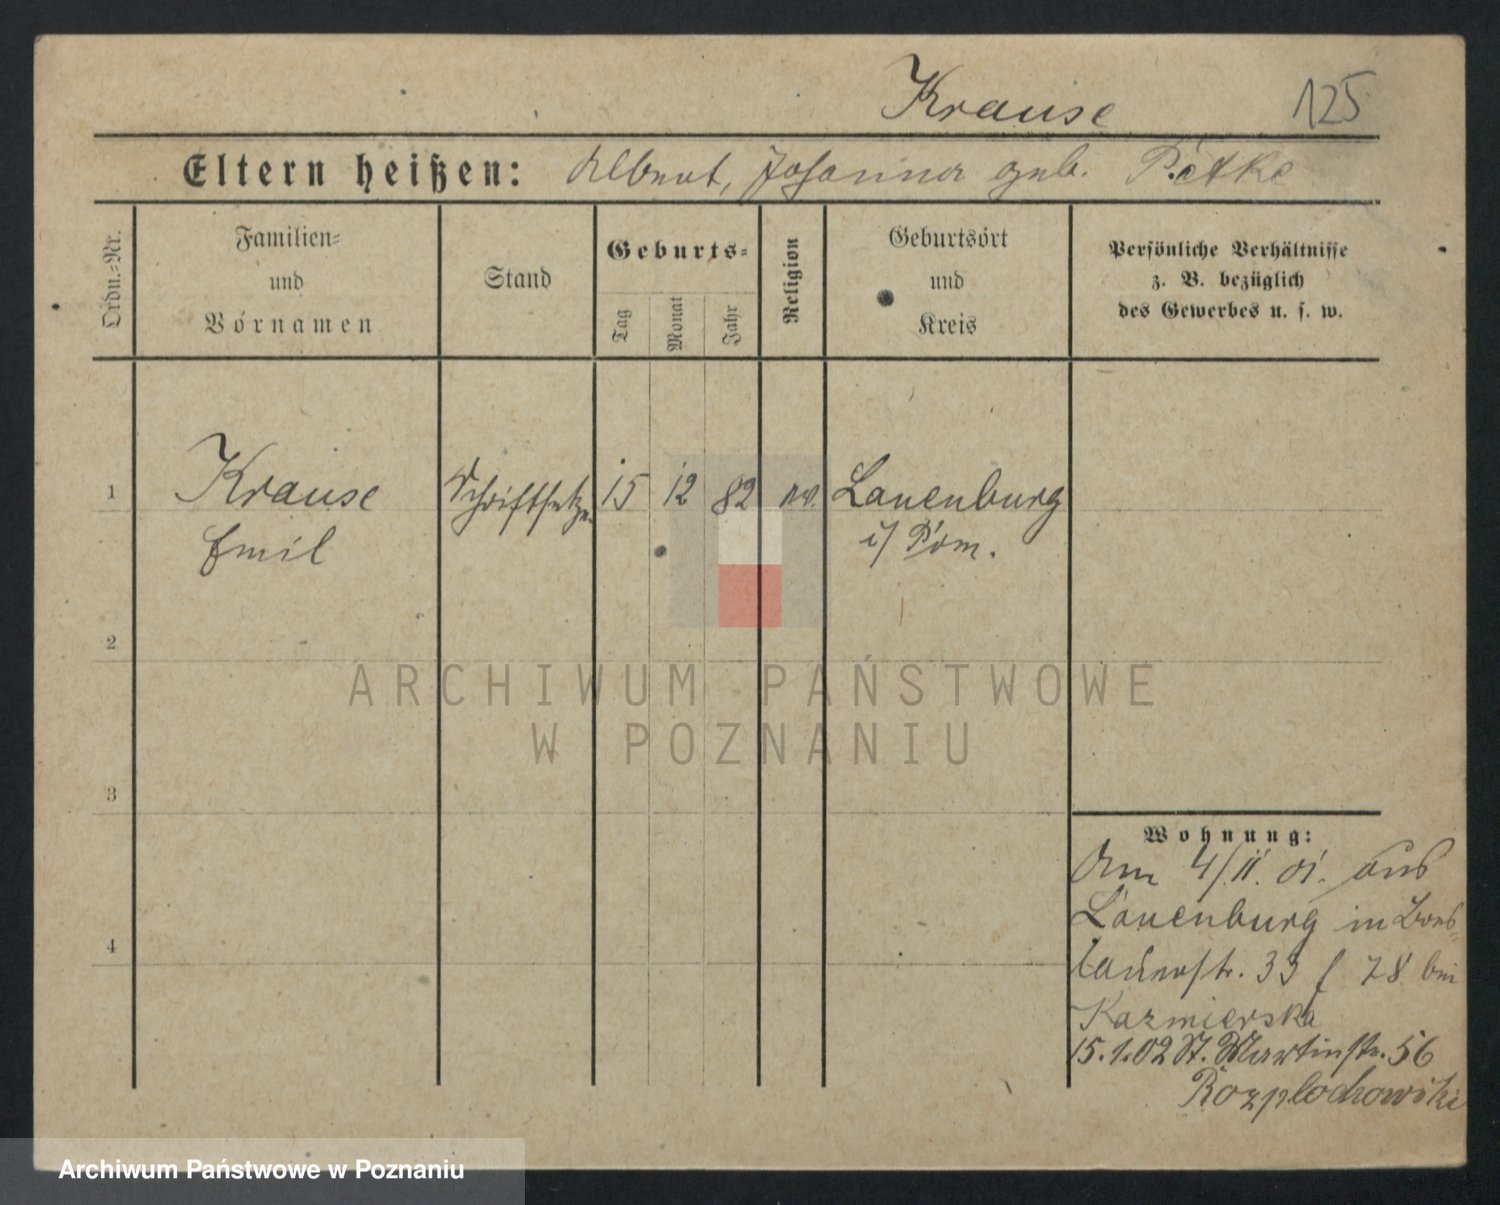 Krause 125
Eltern heißen: Albert, Johanna geb. Petke
Ordn.=Nr.
Familien=
und
Vornamen
Stand
Geburts=
Tag
Monat
Jahr
Religion
Geburtsort
und
Kreis
Persönliche Verhältnisse
z. B. bezüglich
des Gewerbes u. s. w.
1 Krause Schriftsetzer 15 12 82 ev. Lauenburg
Emil i/ Pom.
2
ARCHIWUM PAŃSTWOWE
W POZNANIU
3
Wohnung:
Am 4/11. 01. aus
Lauenburg in Bres=
lauerstr. 33 bei
Kazmierska
15.1.02 St. Martinstr. 56
Rozplochowski
4
Archiwum Państwowe w Poznaniu